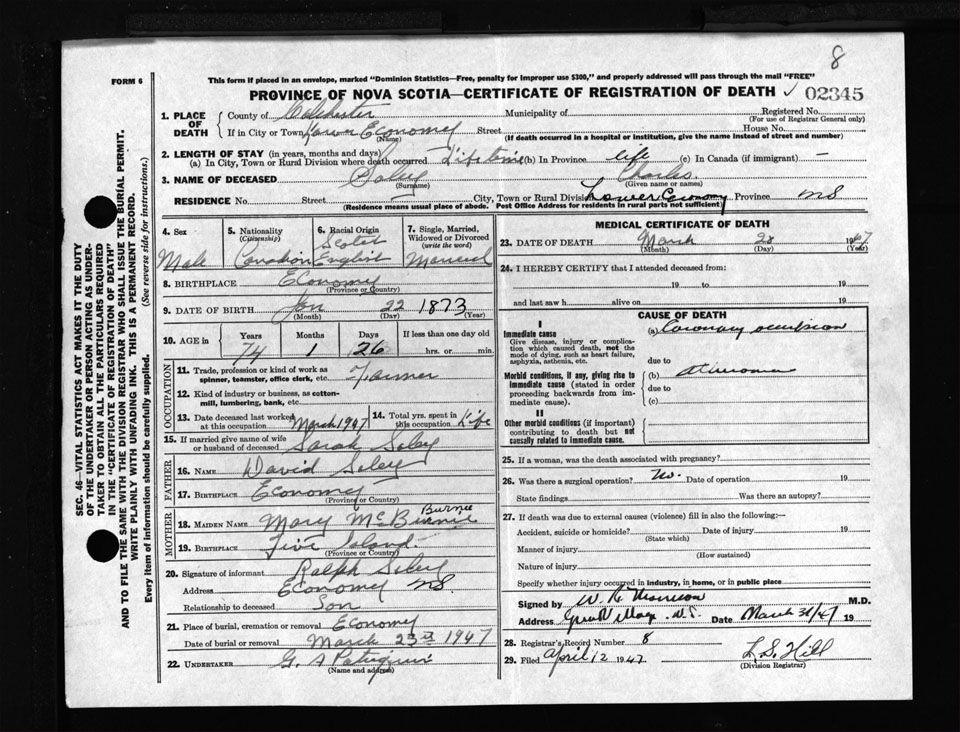 8
FORM 6
This form if placed in an envelope, marked "Dominion Statistics—Free, penalty for improper use $300," and properly addressed will pass through the mail "FREE"
PROVINCE OF NOVA SCOTIA—CERTIFICATE OF REGISTRATION OF DEATH ✓ 02345
SEC. 46—VITAL STATISTICS ACT MAKES IT THE DUTY
OF THE UNDERTAKER OR PERSON ACTING AS UNDER-
TAKER TO OBTAIN ALL THE PARTICULARS REQUIRED
IN THE "CERTIFICATE OF REGISTRATION OF DEATH"
AND TO FILE THE SAME WITH THE DIVISION REGISTRAR WHO SHALL ISSUE THE BURIAL PERMIT.
WRITE PLAINLY WITH UNFADING INK. THIS IS A PERMANENT RECORD.
Every item of information should be carefully supplied. (See reverse side for instructions.)
1. PLACE OF DEATH
County of Colchester Municipality of Registered No.
(For use of Registrar General only)
If in City or Town Lower Economy Street House No.
(Name) (If death occurred in a hospital or institution, give the name instead of street and number)
2. LENGTH OF STAY (in years, months and days)
(a) In City, Town or Rural Division where death occurred Life time (b) In Province life (c) In Canada (if immigrant) —
3. NAME OF DECEASED Soley Charles
(Surname) (Given name or names)
RESIDENCE No. Street City, Town or Rural Division Lower Economy Province NS
(Residence means usual place of abode. Post Office Address for residents in rural parts not sufficient)
4. Sex Male
5. Nationality (Citizenship) Canadian
6. Racial Origin Scotch English
7. Single, Married, Widowed or Divorced (write the word) Married
8. BIRTHPLACE Economy
(Province or Country)
9. DATE OF BIRTH Jan 22 1873
(Month) (Day) (Year)
10. AGE in Years Months Days If less than one day old
74 1 26 hrs. or min.
OCCUPATION
11. Trade, profession or kind of work as Farmer
spinner, teamster, office clerk, etc.
12. Kind of industry or business, as cotton-
mill, lumbering, bank, etc.
13. Date deceased last worked at this occupation March 1947
14. Total yrs. spent in this occupation Life
15. If married give name of wife or husband of deceased Sarah Soley
FATHER
16. NAME David Soley
17. BIRTHPLACE Economy
(Province or Country)
MOTHER
Burnie
18. MAIDEN NAME Mary McBurnie
19. BIRTHPLACE Five Island
(Province or Country)
20. Signature of informant Ralph Soley
Address Economy NS
Relationship to deceased Son
21. Place of burial, cremation or removal Economy
Date of burial or removal March 23 1947
22. UNDERTAKER G. A
(Name and address)
MEDICAL CERTIFICATE OF DEATH
23. DATE OF DEATH March 20 1947
(Month) (Day) (Year)
24. I HEREBY CERTIFY that I attended deceased from:
19 to 19
and last saw h alive on 19
CAUSE OF DEATH
I
Immediate cause (a) Coronary occlusion
Give disease, injury or complica-
tion which caused death, not the
mode of dying, such as heart failure,
asphyxia, asthenia, etc.
due to
Morbid conditions, if any, giving rise to (b) Atheroma
immediate cause (stated in order due to
proceeding backwards from im- (c)
mediate cause).
II
Other morbid conditions (if important)
contributing to death but not
causally related to immediate cause.
25. If a woman, was the death associated with pregnancy?
26. Was there a surgical operation? No. Date of operation 19
State findings Was there an autopsy?
27. If death was due to external causes (violence) fill in also the following:—
Accident, suicide or homicide? Date of injury 19
(State which)
Manner of injury
(How sustained)
Nature of injury
Specify whether injury occurred in industry, in home, or in public place
Signed by W. R. Morrison M.D.
Address Great Village N.S. Date March 31/47 19
28. Registrar's Record Number 8
29. Filed April 12 1947 L. S. Hill
(Division Registrar)